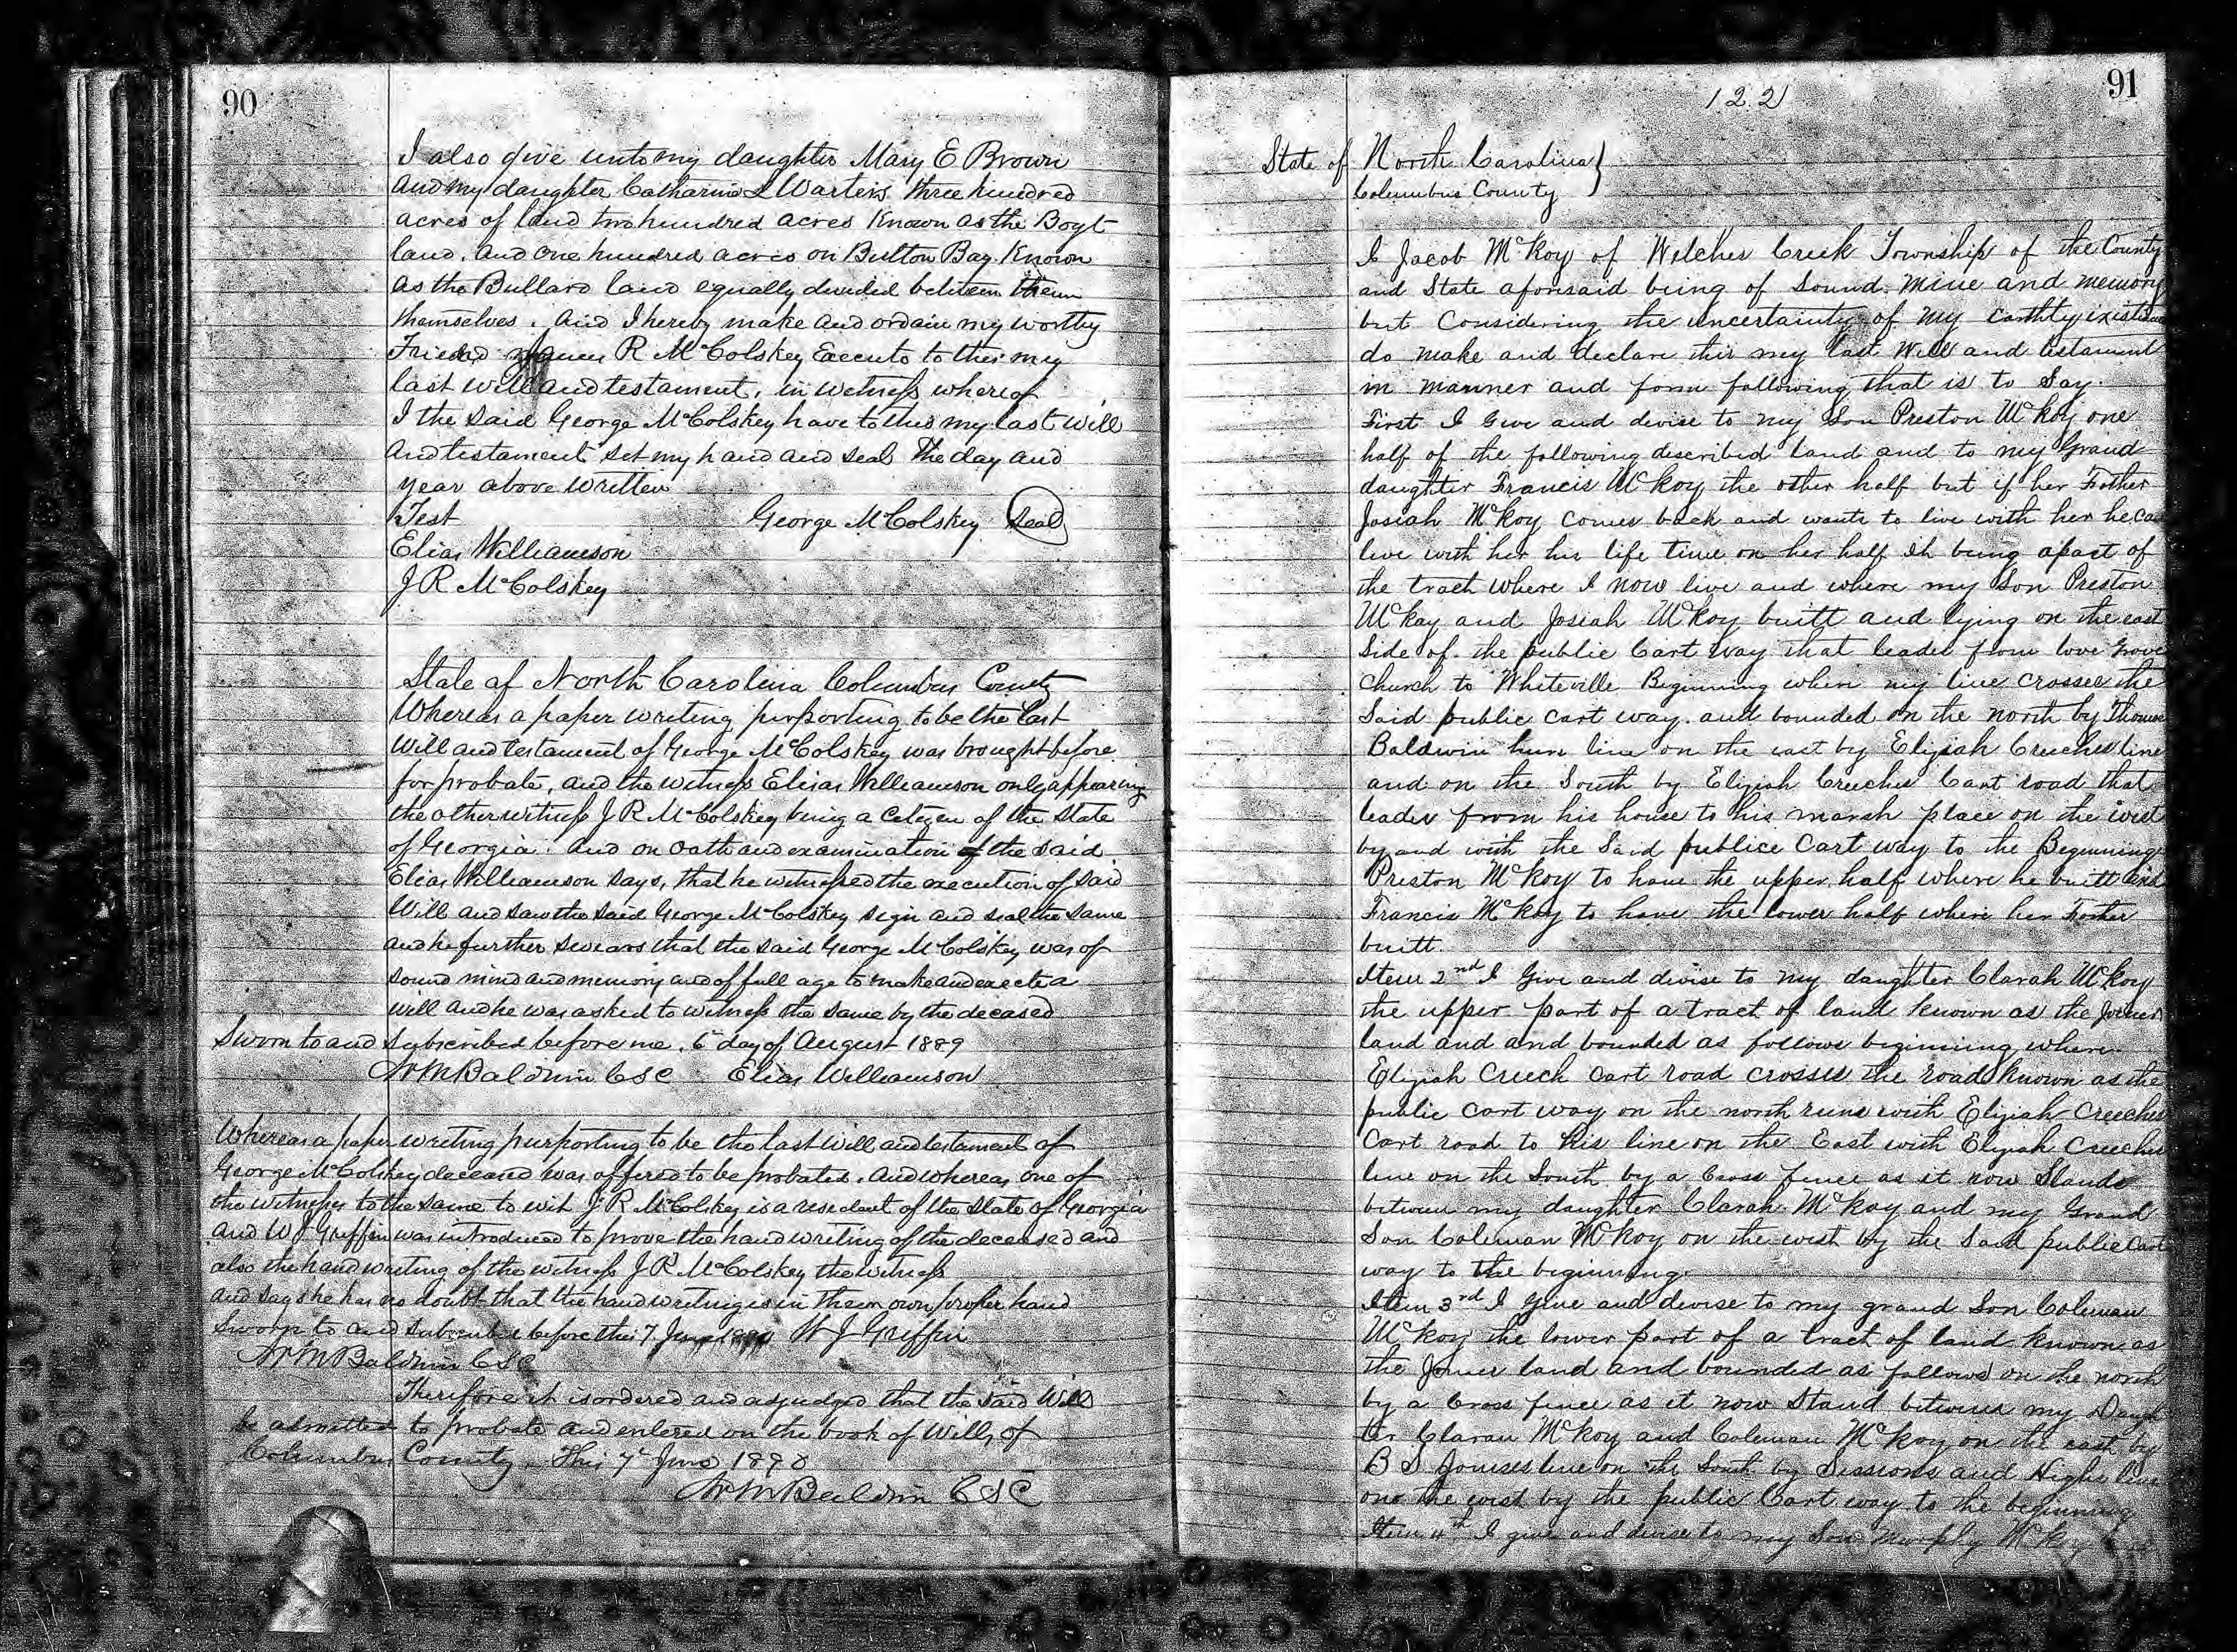 90
I also give unto my daughter Mary E Brown
and my daughter Catharine L Warters three hundred
acres of land two hundred acres Known as the Boyt
land, and one hundred acres on Button Bay Known
as the Bullard land equally divided between them
themselves. And I hereby make and ordain my worthy
Friend James R McColskey Executo to this my
last will and testament, in witness whereof
I the said George McColskey have to this my last will
and testament set my hand and seal The day and
year above written
Test George McColskey Seal
Elias Williamson
J R McColskey
State of North Carolina Columbus County
Whereas a paper writing purporting to be the last
Will and testament of George McColskey was brought before
for probate, and the witness Elias Williamson only appearing
the other witness J R McColskey being a Citizen of the State
of Georgia. And on oath and examination of the said
Elias Williamson says, that he witnessed the execution of said
Will and saw the said George McColskey sign and seal the same
and he further swears that the said George McColskey was of
sound mind and memory and of full age to make and execute a
will and he was asked to witness the same by the deceased
Sworn to and Subscribed before me. 6 day of August 1889
Baldwin CSC Elias Williamson
Whereas a paper writing purporting to be the last will and testament of
George McColskey deceased was offered to be probated. And whereas one of
the witnesses to the same to wit J R McColskey is a resident of the State of Georgia
and W J Griffin was introduced to prove the hand writing of the deceased and
also the hand writing of the witness J R McColskey the witness
and says he has no doubt that the hand writing is in them own proper hand
Sworn to and subscribed before this 7 June 1890 W J Griffin
Baldwin CSC
Therefore it is ordered and adjudged that the said Will
be admitted to probate and entered on the book of Wills of
Columbus County. This 7 June 1890
Baldwin CSC
91
122
State of North Carolina
Columbus County
I Jacob McKoy of Welches Creek Township of the County
and State aforesaid being of Sound mine and memory
but Considering the uncertainty of my earthly existance
do make and declare this my last Will and testament
in manner and form following that is to Say.
First I Give and devise to my Son Preston McKoy one
half of the following described land and to my Grand
daughter Francis McKoy the other half but if her Father
Josiah McKoy comes back and wants to live with her he can
live with her his life time on her half it being apart of
the tract where I now live and where my Son Preston
McKoy and Josiah McKoy built and lying on the east
Side of the public Cart way that leades from love Grove
Church to Whiteville Beginning where my line crosses the
Said public cart way. and bounded on the north by Thomas
Baldwin line on the east by Elijiah Creeches line
and on the South by Elijiah Creeches Cart road that
leades from his house to his marsh place on the west
by and with the Said publice Cart way to the Beginning
Preston McKoy to have the upper half where he built and
Francis McKoy to have the lower half where her Father
built.
Item 2nd I Give and divise to my daughter Clarah McKoy
the upper part of a tract of land known as the Joiner
land and and bounded as follows beginning where
Elijiah Creech Cart road crosses the road known as the
public cart way on the north runs with Elijiah Creeches
Cart road to his line on the East with Elijiah Creeches
line on the South by a Cross fence as it now Stands
between my daughter Clarah McKoy and my Grand
Son Coleman McKoy on the west by the Said public Cart
way to the beginning.
Item 3rd I Give and devise to my grand Son Coleman
McKoy the lower part of a tract of land known as
the Joiner land and bounded as follows on the north
by a Cross fence as it now Stand between my Daugh
ter Clarah McKoy and Coleman McKoy on the east by
B S Joneses line on the South by Sessions and Highs line
one the west by the public Cart way to the beginning
Item 4th I give and devise to my Son Murphy McKoy